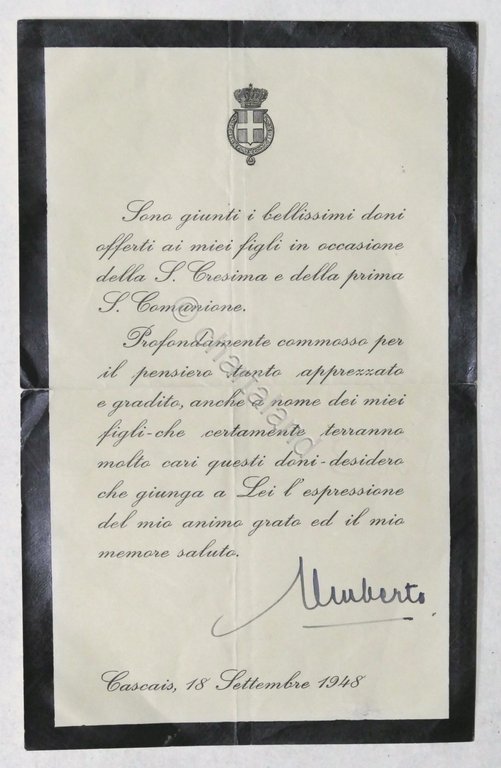 Sono giunti i bellissimi doni
offerti ai miei figli in occasione
della S. Cresima e della prima
S. Comunione.
Profondamente commosso per
il pensiero tanto apprezzato
e gradito, anche a nome dei miei
figli-che certamente terranno
molto cari questi doni-desidero
che giunga a Lei l'espressione
del mio animo grato ed il mio
memore saluto.
Umberto
Cascais, 18 Settembre 1948
© Chartaland